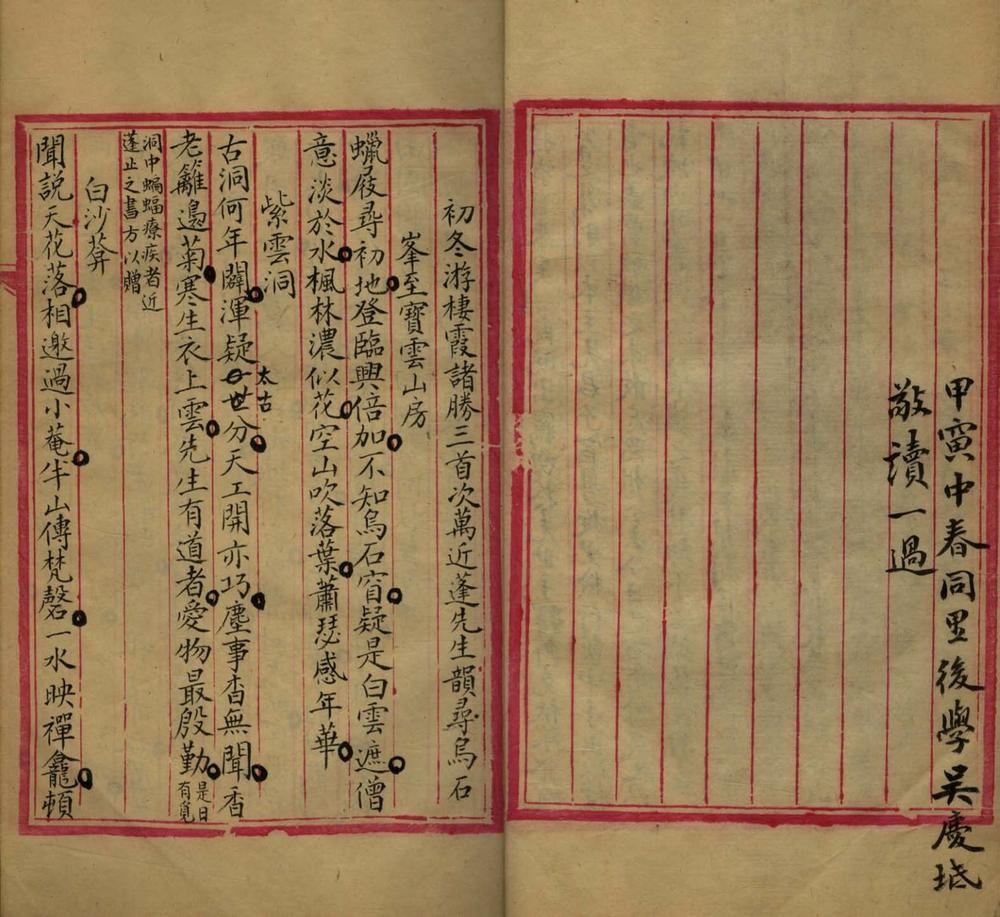 甲寅中春同里後學吳慶坻
敬讀一過
初冬游棲霞諸勝三首次萬近蓬先生韻尋烏石
峯至寶雲山房
蠟屐尋初地登臨興倍加不知烏石窅疑是白雲遮僧
意淡於水楓林濃似花空山吹落葉蕭瑟感年華
紫雲洞
古洞何年闢渾疑世分天工開亦巧塵事杳無聞香
太古
老籬邊菊寒生衣上雲先生有道者愛物最殷勤是日
有覓
洞中蝙蝠療疾者近
蓬止之書方以贈
白沙葊
聞說天花落相邀過小菴半山傳梵磬一水映禪龕頓